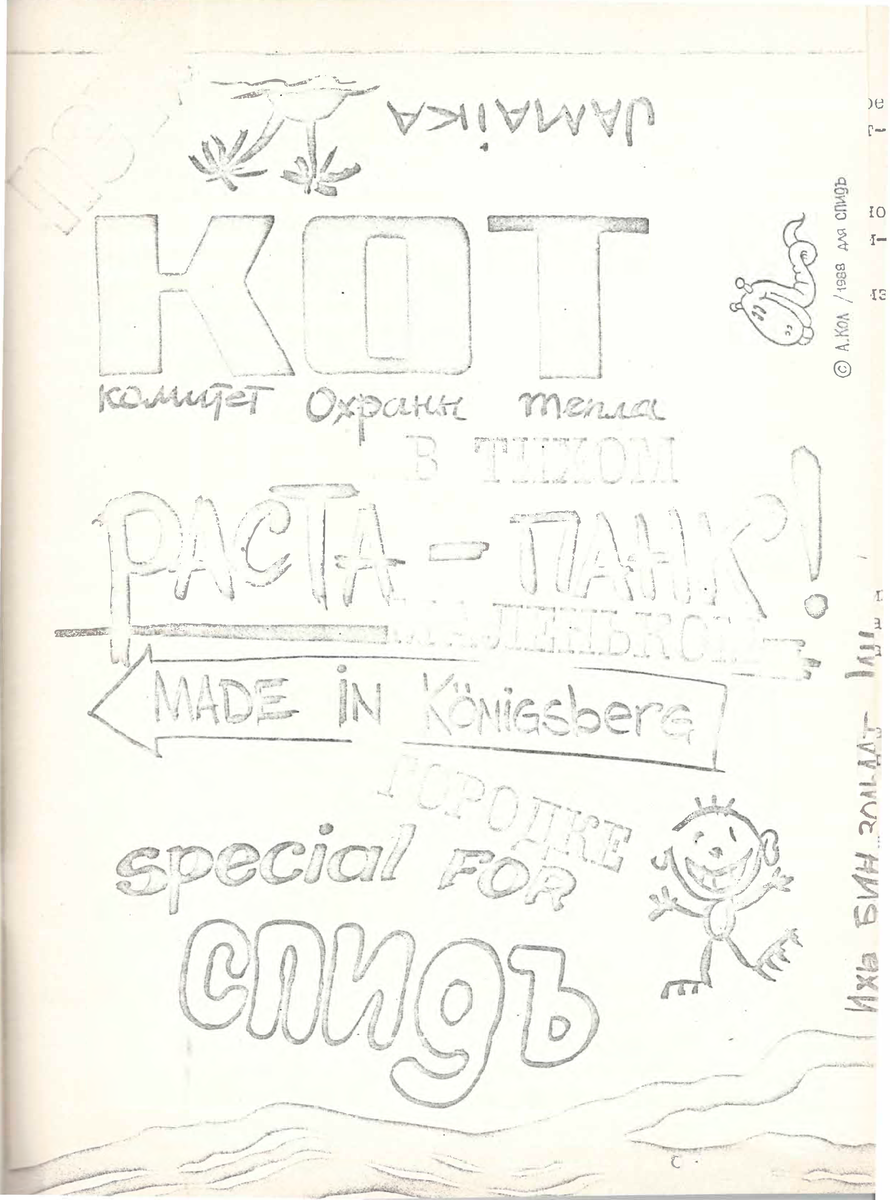 JAMAiKA
КОТ
комитет Охраны тепла
В ТИХОМ
РАСТА - ПАНК!
МАЛЕНЬКОМ
MADE iN Königsberg
ГОРОДКЕ
special FOR
СПИДЪ
© А.КОЛ /1988 для СПИДЪ
Ихь БИН ЗОЛЬДАТ